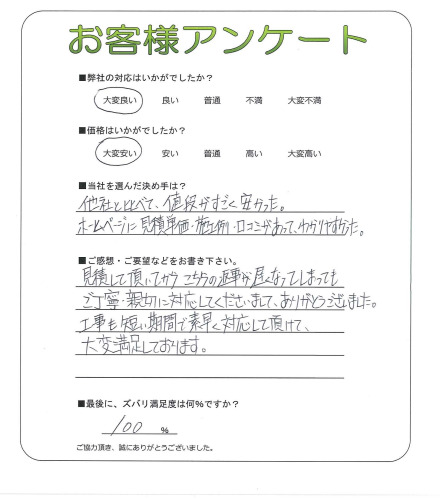 お客様アンケート
■弊社の対応はいかがでしたか？
大変良い 良い 普通 不満 大変不満
■価格はいかがでしたか？
大変安い 安い 普通 高い 大変高い
■当社を選んだ決め手は？
他社と比べて、値段がすごく安かった。
ホームページに見積単価・施工例・口コミがあって、わかりやすかった。
■ご感想・ご要望などをお書き下さい。
見積して頂いてから こちらの返事が遅くなってしまっても
ご丁寧・親切に対応してくださいまして、ありがとうございました。
工事も短い期間で素早く対応して頂けて、
大変満足しております。
■最後に、ズバリ満足度は何%ですか？
100 %
ご協力頂き、誠にありがとうございました。